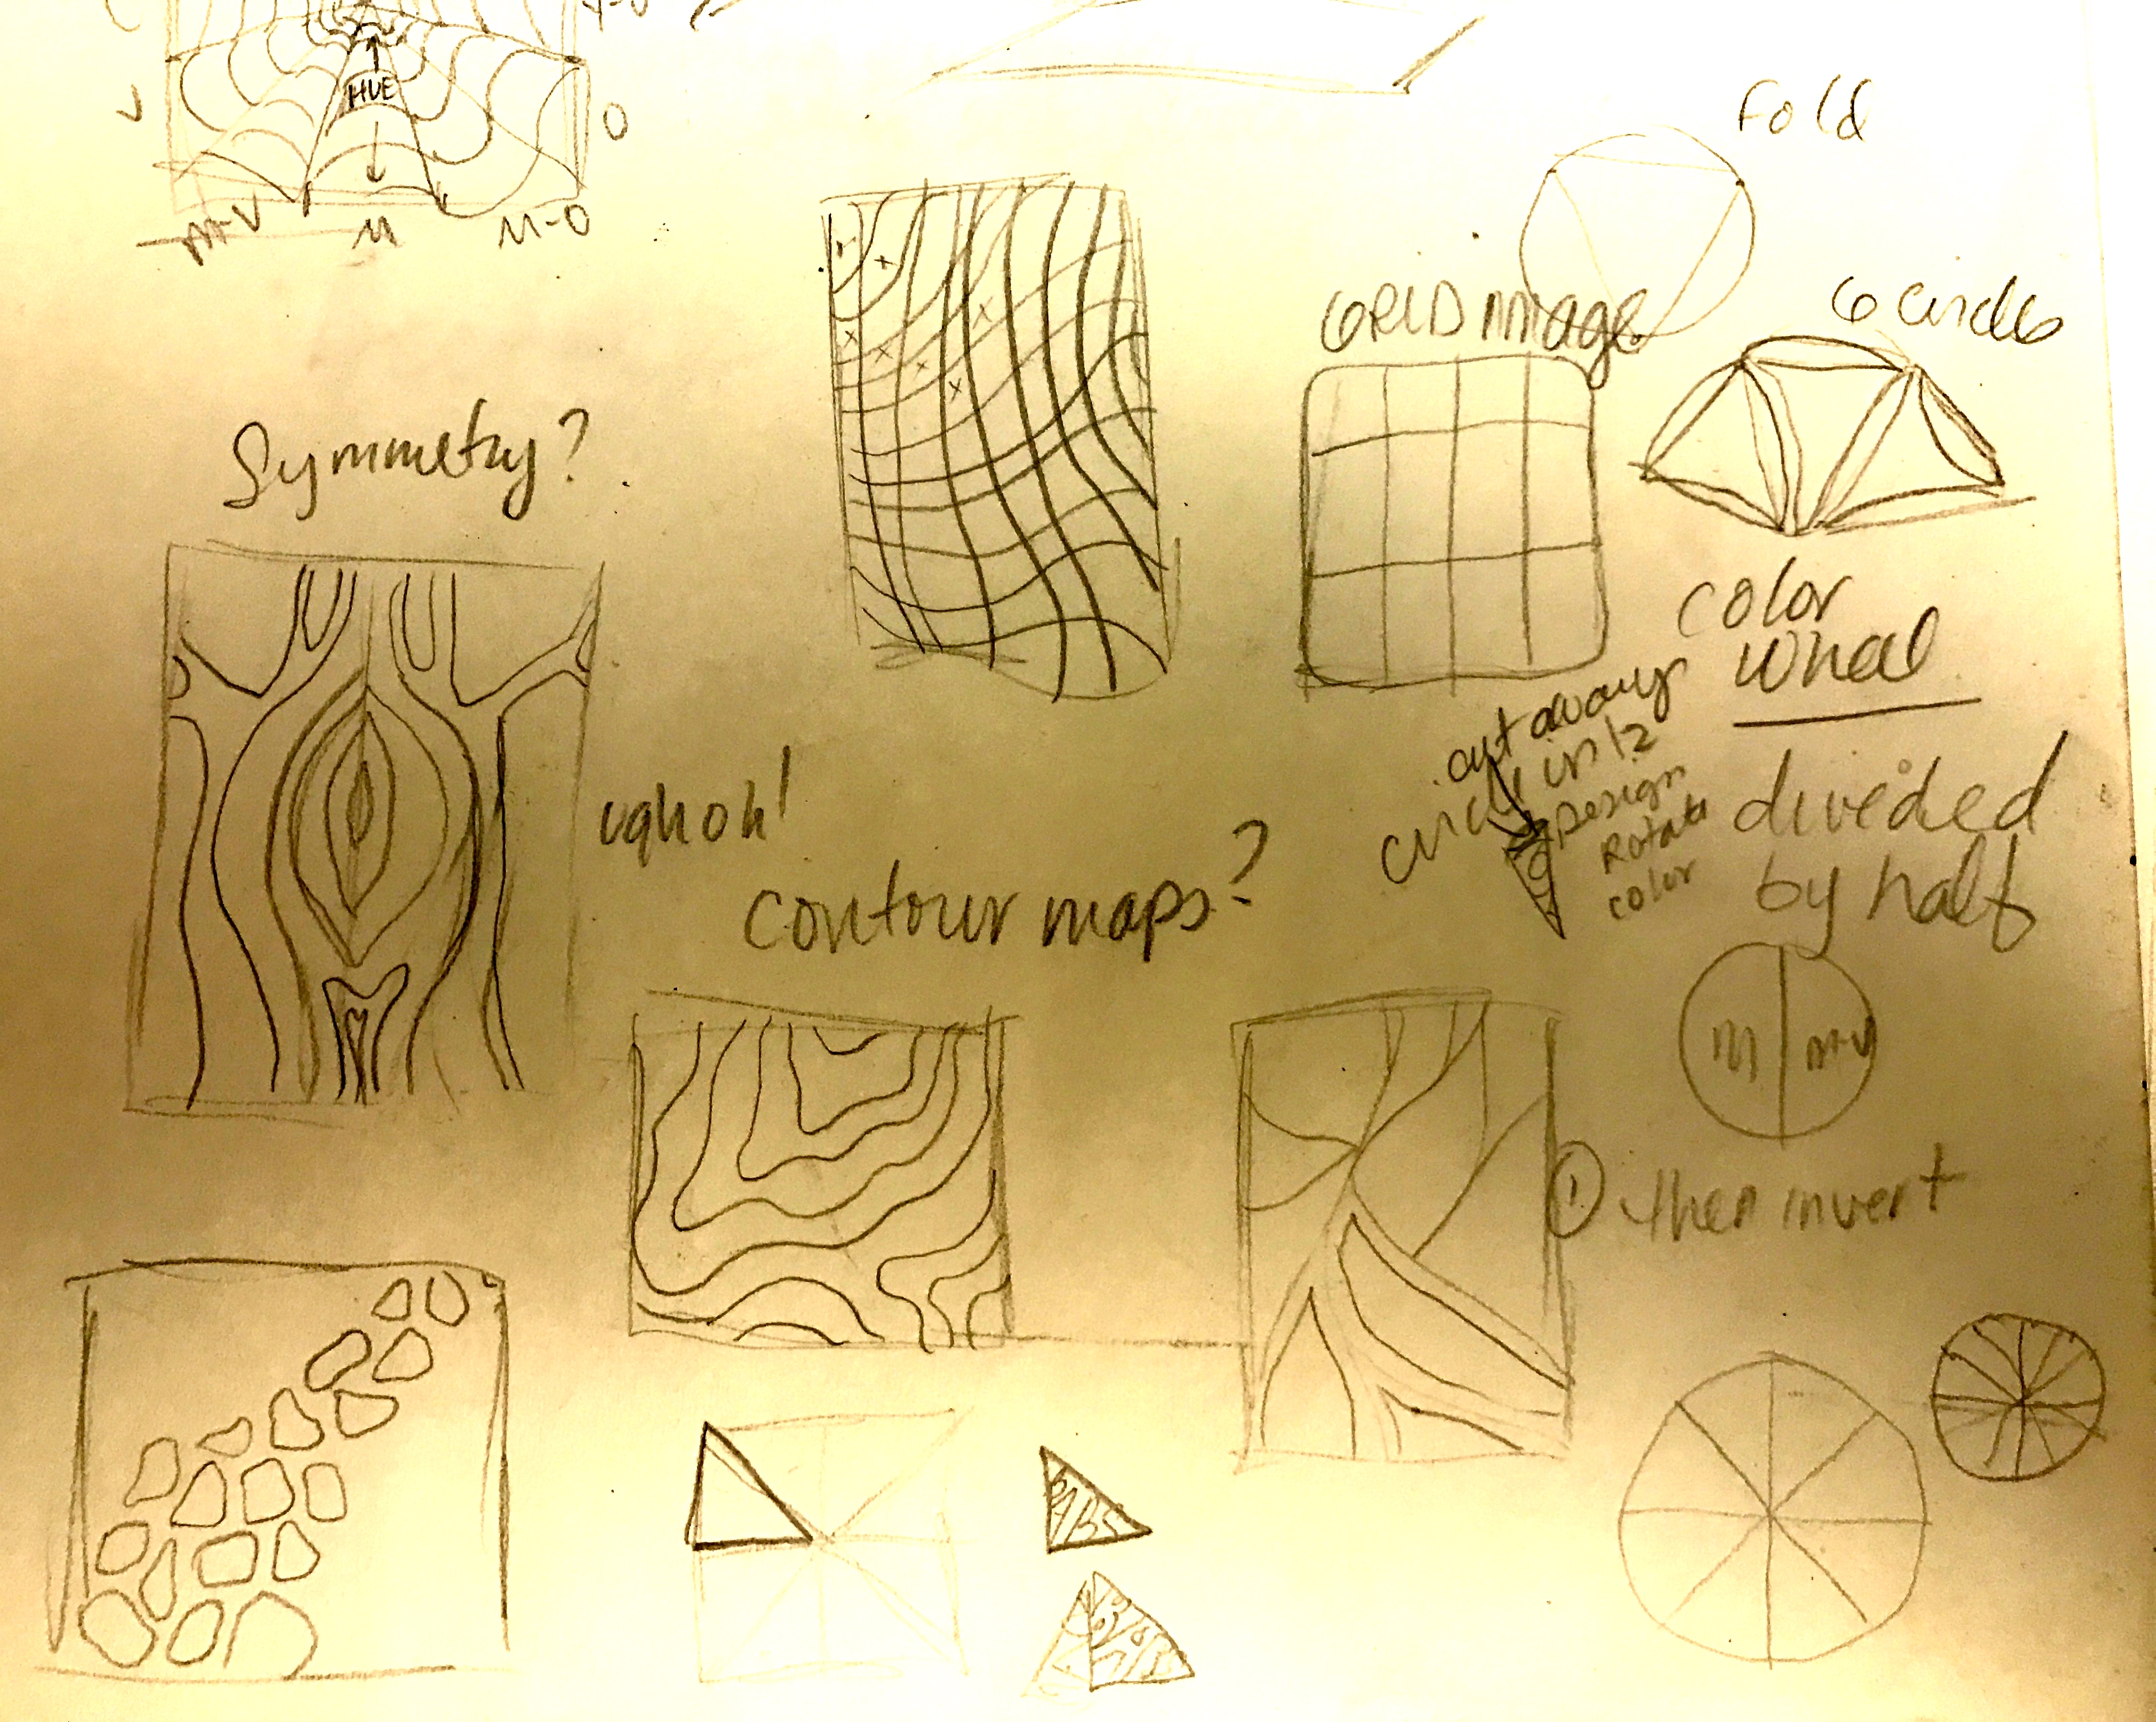 HUE
V
O
M-V
M
M-O
Fold
GRID image
6 circles
Symmetry?
color
wheel
cut away
circle in 12
Design
Rotate
color
divided
by half
ugh oh!
contour maps?
M
M-V
1 then invert